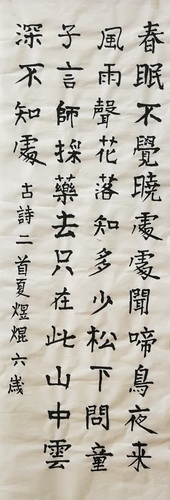 春眠不覺曉處處聞啼鳥夜来
風雨聲花落知多少松下問童
子言師採藥去只在此山中雲
深不知處
古詩二首夏煜焜六歲